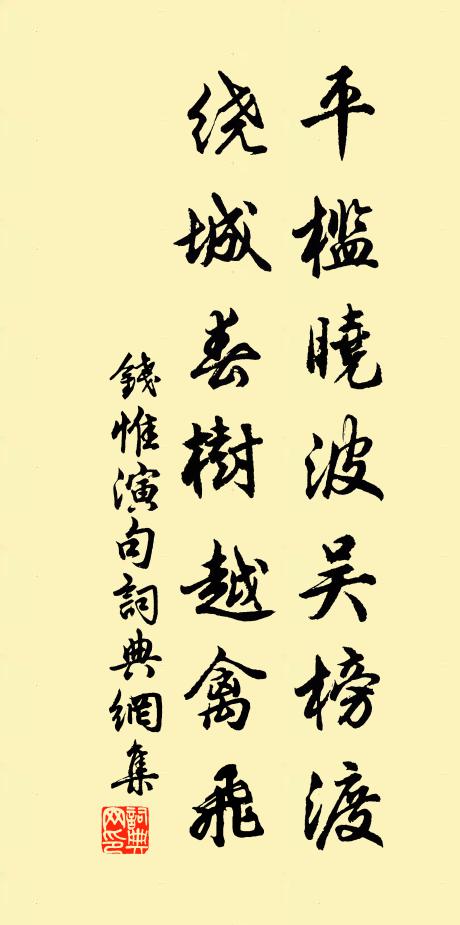 平檻曉波吴榜渡
绕城春樹越禽飛
錢惟演句詞典網集
詞典网印